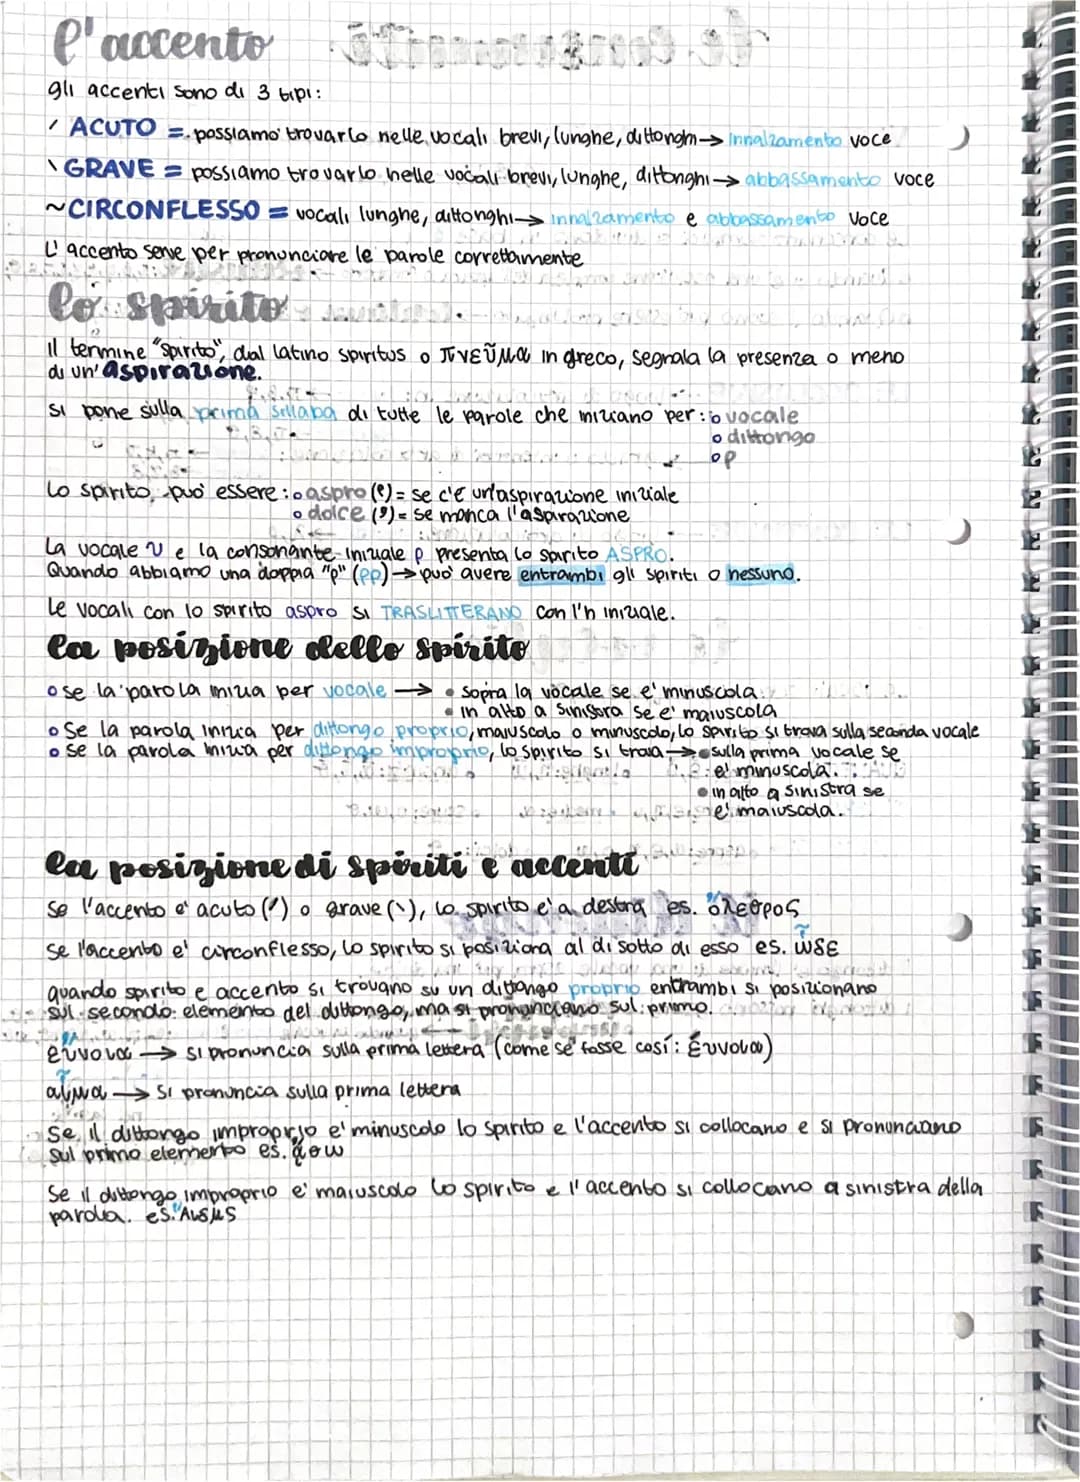 l'accento
gli accenti sono di 3 tipi:
/ ACUTO = possiamo trovarlo nelle vocali brevi, lunghe, dittonghi → innalzamento voce
\ GRAVE = possiamo trovarlo nelle vocali brevi, lunghe, dittonghi → abbassamento voce
~ CIRCONFLESSO = vocali lunghe, dittonghi → innalzamento e abbassamento voce
L'accento serve per pronunciare le parole correttamente
lo spirito
il termine "spirito", dal latino spiritus o πνεῦμα in greco, segnala la presenza o meno
di un'aspirazione.
si pone sulla prima sillaba di tutte le parole che iniziano per: o vocale
o dittongo
o ρ
Lo spirito può essere: o aspro (῾) = se c'è un'aspirazione iniziale
o dolce (᾿) = se manca l'aspirazione
La vocale υ e la consonante iniziale ρ presenta lo spirito ASPRO.
Quando abbiamo una doppia "ρ" (ρρ) → può avere entrambi gli spiriti o nessuno.
Le vocali con lo spirito aspro si TRASLITTERANO con l'h iniziale.
la posizione dello spirito
o se la parola inizia per vocale → • sopra la vocale se e' minuscola
• in alto a sinistra se e' maiuscola
o Se la parola inizia per dittongo proprio, maiuscolo o minuscolo, lo spirito si trova sulla seconda vocale
o se la parola inizia per dittongo improprio, lo spirito si trova → • sulla prima vocale se
e' minuscola.
• in alto a sinistra se
e' maiuscola.
la posizione di spiriti e accenti
se l'accento e' acuto (´) o grave (`), lo spirito e' a destra es. ὄλεθρος
se l'accento e' circonflesso, lo spirito si posiziona al di sotto di esso es. ὧδε
quando spirito e accento si trovano su un dittongo proprio entrambi si posizionano
sul secondo elemento del dittongo, ma si pronunciano sul primo.
εὔνοια → si pronuncia sulla prima lettera (come se fosse così: έυνοια)
αἷμα → si pronuncia sulla prima lettera
Se il dittongo improprio e' minuscolo lo spirito e l'accento si collocano e si pronunciano
sul primo elemento es.
Se il dittongo improprio e' maiuscolo lo spirito e l'accento si collocano a sinistra della
parola. es.